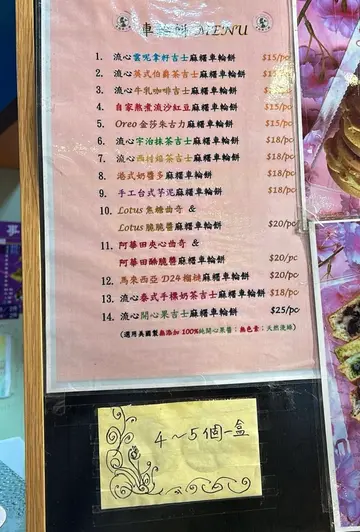 車輪餅 MENU
1. 流心雲呢拿籽吉士麻糬車輪餅 $15/pc
2. 流心英式伯爵茶吉士麻糬車輪餅 $15
3. 流心牛乳咖啡吉士麻糬車輪餅
4. 自家熬煮流沙紅豆麻糬車輪餅 $18/pc
5. Oreo金莎朱古力麻糬車輪餅 $18/pc
6. 流心宇治抹茶吉士麻糬車輪餅 $18/pc
7. 流心西村焙茶吉士麻糬車輪餅 $18/pc
8. 港式奶醬多麻糬車輪餅 $18/pc
9. 手工台式芋泥麻糬車輪餅 $18/pc
10. Lotus焦糖曲奇 &
Lotus脆脆醬麻糬車輪餅 $20/pc
11. 阿華田夾心曲奇 &
阿華田酥脆醬麻糬車輪餅 $20/pc
12. 馬來西亞D24榴槤麻糬車輪餅 $20/pc
13. 流心泰式手標奶茶吉士麻糬車輪餅 $18/pc
14. 流心開心果吉士麻糬車輪餅 $25/pc
(選用美國製無添加100%純開心果醬;無色素;天然漫綠)
4～5個一盒